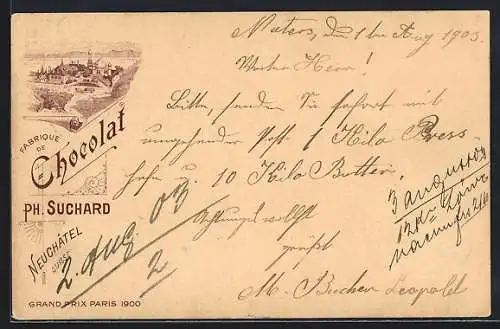 FABRIQUE
DE
Chocolat
PH. SUCHARD
NEUCHÂTEL
SUISSE
GRAND PRIX PARIS 1900
Naters, den 1 ten Aug 1903
Werter Herr!
Bitte, senden Sie sofort mit
umgehender Post 1 Kilo Press-
hefe u. 10 Kilo Butter.
Achtungsvollst
grüsst
M. Bucher Leopold
2. AUG. 03
2
3 augusto
12 K